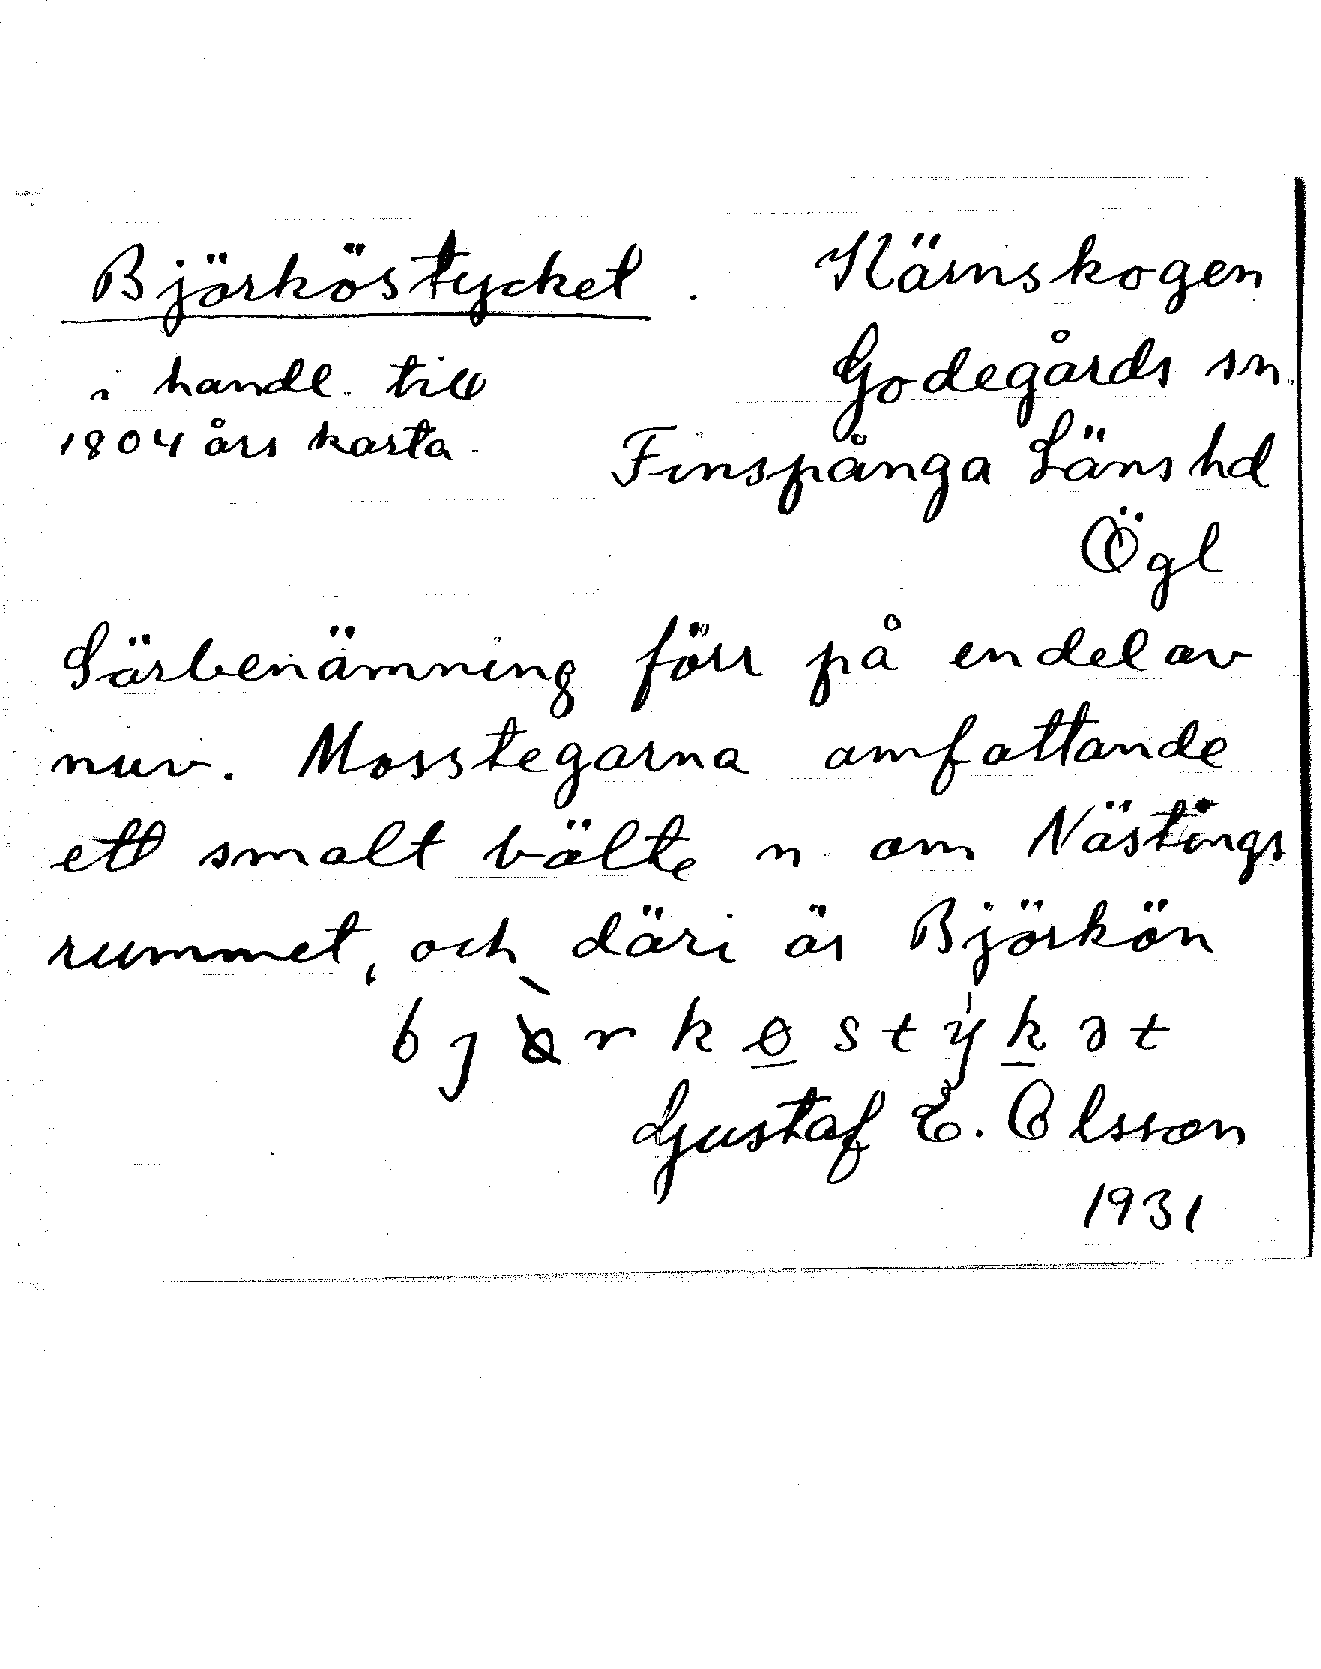 Björköstycket. Kärnskogen
i handl. till Godegårds sn.
1804 års karta. Finspånga Läns hd
Ögl
Särbenämning förr på en del av
nuv. Mosstegarna omfattande
ett smalt bälte n om Nästängs
rummet, och däri är Björkön
bjòrkøstýkət
Gustaf E. Olsson
1931